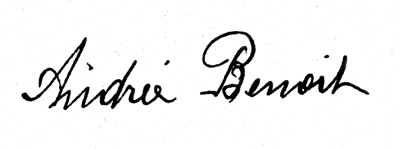 Andrée Benoit